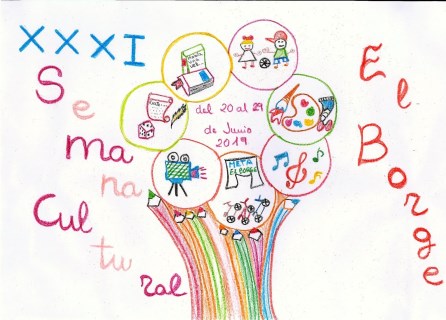 XXXI
Se
ma
na
Cul
tu
ral
del 20 al 29
de Junio
2019
META
EL BORGE
El
Borge